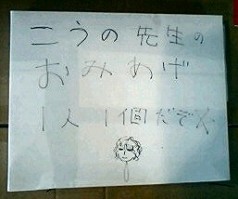 こうの先生の
おみあげ
1人1個だぞ